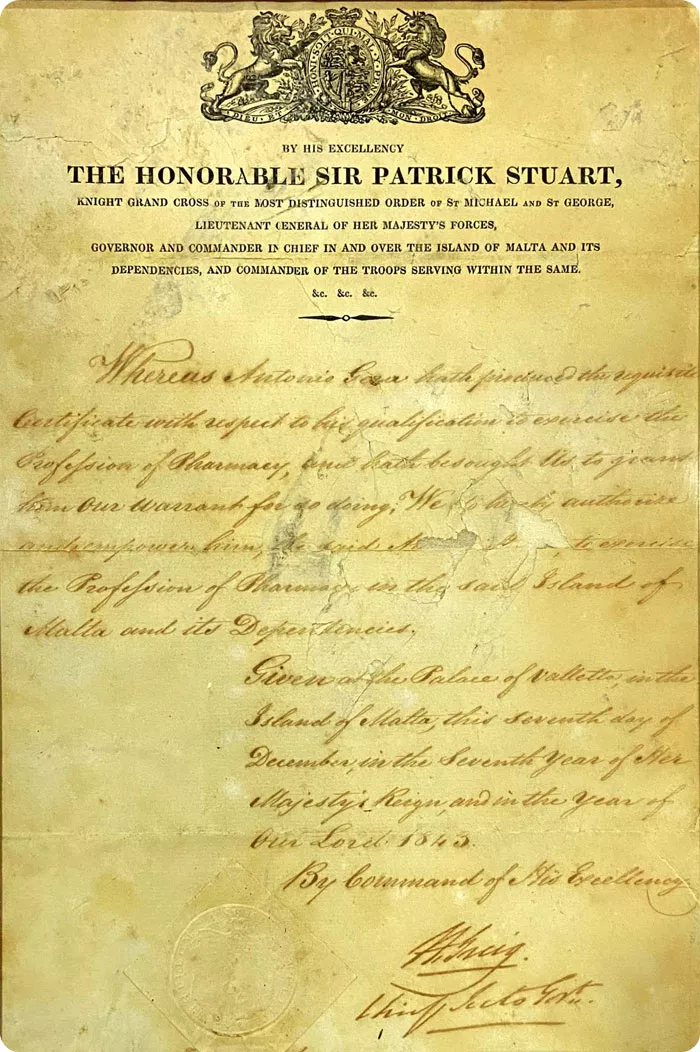 HONI·SOIT·QUI·MAL·Y·PENSE
DIEU·ET MON·DROIT
BY HIS EXCELLENCY
THE HONORABLE SIR PATRICK STUART,
KNIGHT GRAND CROSS OF THE MOST DISTINGUISHED ORDER OF ST MICHAEL AND ST GEORGE,
LIEUTENANT GENERAL OF HER MAJESTY'S FORCES,
GOVERNOR AND COMMANDER IN CHIEF IN AND OVER THE ISLAND OF MALTA AND ITS
DEPENDENCIES, AND COMMANDER OF THE TROOPS SERVING WITHIN THE SAME.
&c. &c. &c.
Whereas Antonio hath produced the requisite
Certificate with respect to his qualification to exercise the
Profession of Pharmacy, and hath besought Us to grant
him Our Warrant for so doing; We do hereby authorize
and empower him, the said to exercise
the Profession of Pharmacy in the said Island of
Malta and its Dependencies.
Given at the Palace of Valletta, in the
Island of Malta, this Seventh day of
December, in the Seventh Year of Her
Majesty's Reign, and in the Year of
Our Lord 1843.
By Command of His Excellency
Chief Sec. to Govt.